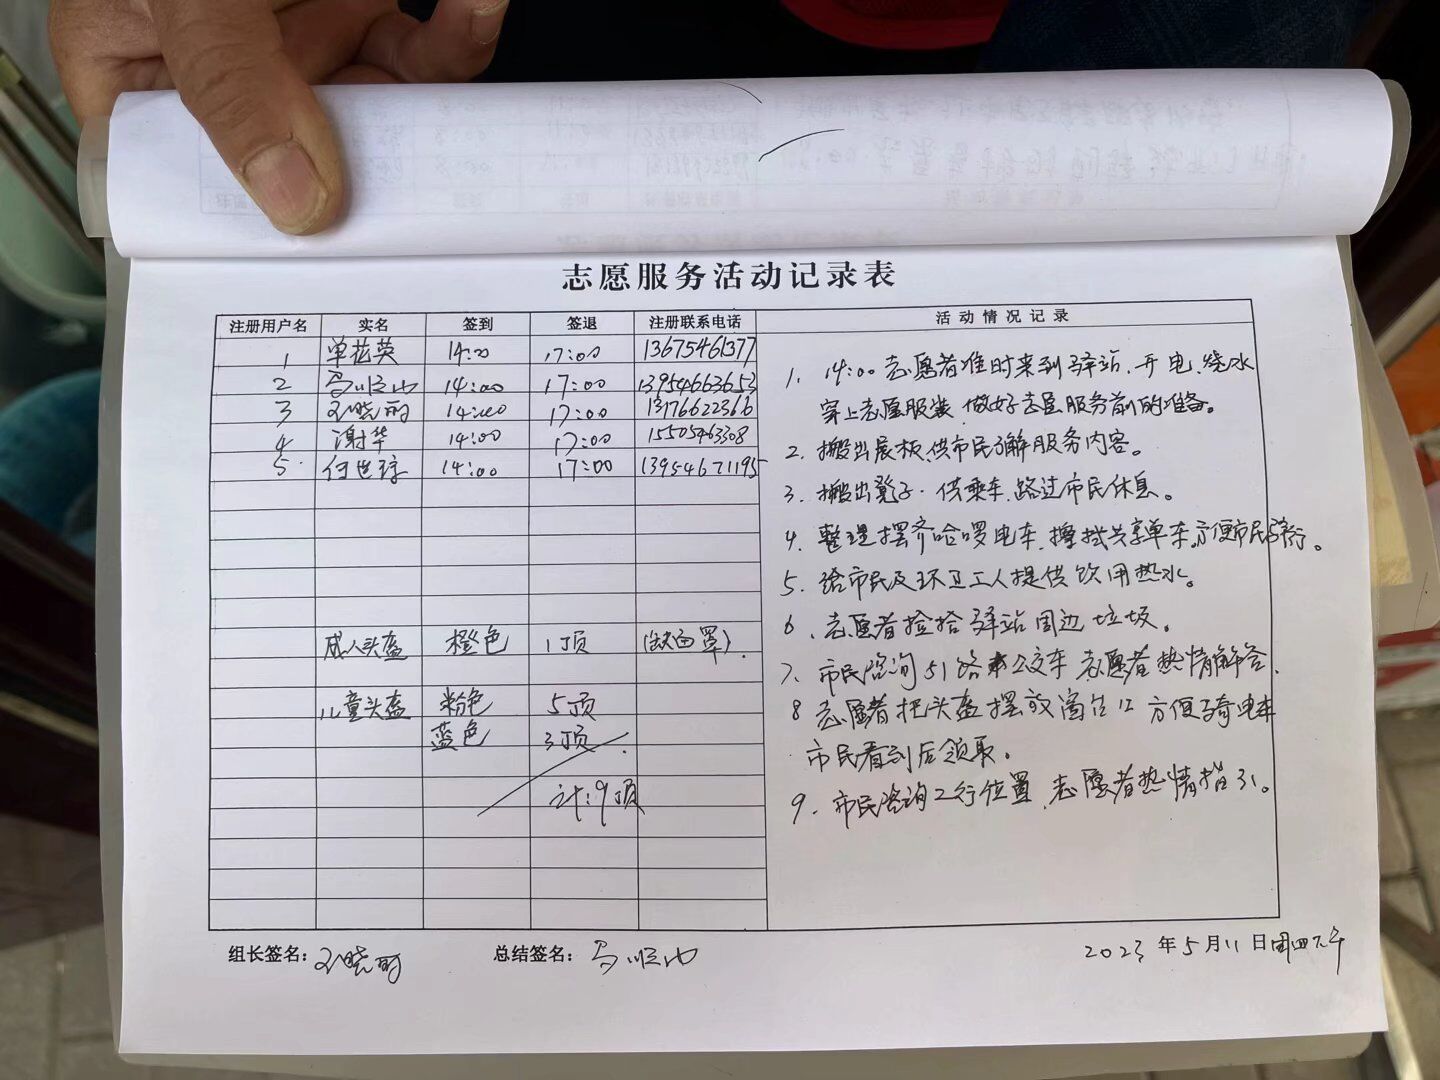 志愿服务活动记录表
注册用户名 实名 签到 签退 注册联系电话 活动情况记录
1 单花英 14:00 17:00 13675461377
2 马顺山 14:00 17:00 13954663653
3 晓丽 14:00 17:00 13176622366
4 谢华 14:00 17:00 15505463308
5 何世 14:00 17:00 13954671195
成人头盔 橙色 1顶 (缺面罩).
儿童头盔 粉色 5顶
蓝色 3顶
计:9顶
1、14:00志愿者准时来到驿站、开电、烧水
穿上志愿服装、做好志愿服务前的准备。
2、搬出展板、供市民了解服务内容。
3、搬出凳子、供乘车、路过市民休息。
4、整理摆齐哈啰电车、擦拭共享单车。方便市民骑行。
5、给市民及环卫工人提供饮用热水。
6、志愿者捡拾驿站周边垃圾。
7、市民咨询51路公交车志愿者热情解答.
8 志愿者把头盔摆放 方便骑电车
市民看到后领取。
9、市民咨询工行位置、志愿者热情指引。
组长签名: 晓丽 总结签名: 马顺山 2023年5月11日周四下午